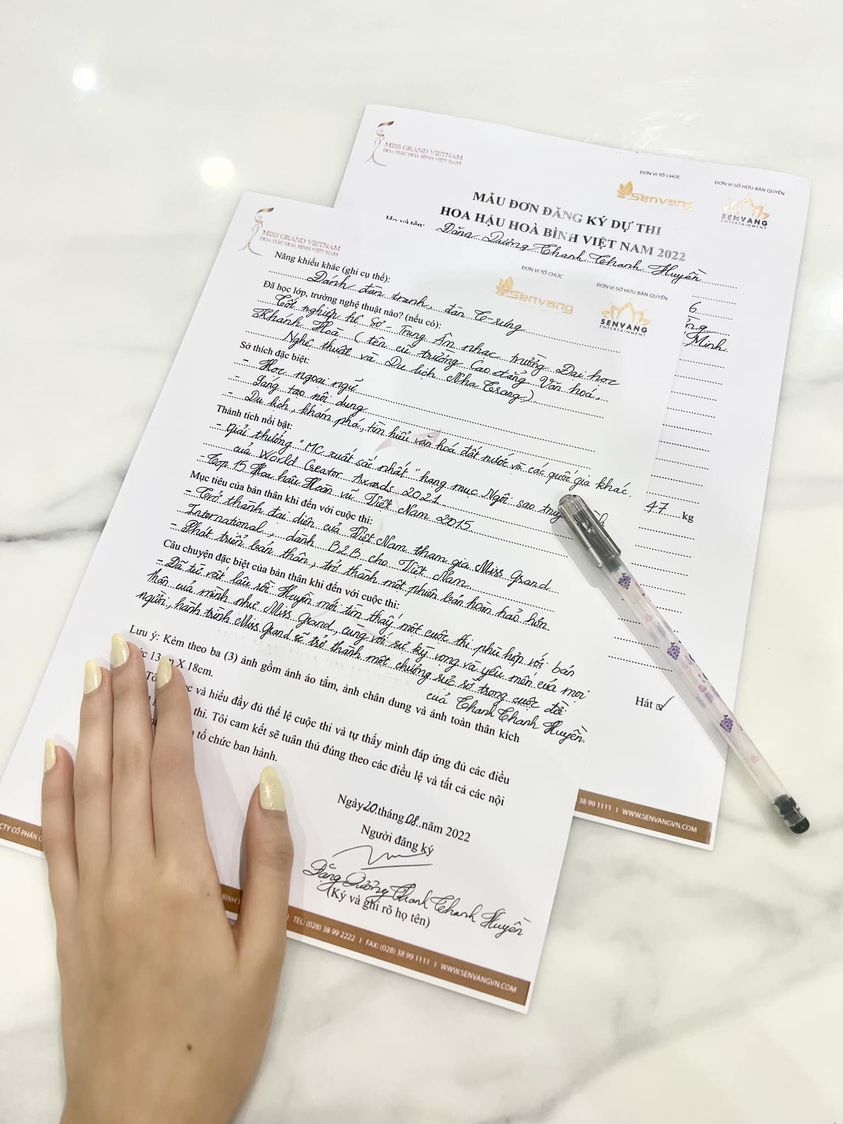 MISS GRAND VIETNAM
HOA HẬU HOÀ BÌNH VIỆT NAM
ĐƠN VỊ TỔ CHỨC
Senvang
ĐƠN VỊ SỞ HỮU BẢN QUYỀN
SENVANG
ENTERTAINMENT
MẪU ĐƠN ĐĂNG KÝ DỰ THI
HOA HẬU HOÀ BÌNH VIỆT NAM 2022
Họ và tên: Đặng Dương Thanh Thanh Huyền
6
Minh
47 kg
Hát ✓
38 99 1111 | WWW.SENVANGVN.COM
CTY CỔ PHẦN
MISS GRAND VIETNAM
HOA HẬU HOÀ BÌNH VIỆT NAM
ĐƠN VỊ TỔ CHỨC
Senvang
ĐƠN VỊ SỞ HỮU BẢN QUYỀN
SENVANG
ENTERTAINMENT
Năng khiếu khác (ghi cụ thể):
Đánh đàn tranh, đàn T'rưng
Đã học lớp, trường nghệ thuật nào? (nếu có):
Tốt nghiệp hệ Sơ - Trung Âm nhạc trường Đại học
Khánh Hoà (tên cũ trường Cao đẳng Văn hoá,
Nghệ thuật và Du lịch Nha Trang)
Sở thích đặc biệt:
- Học ngoại ngữ
- Sáng tạo nội dung
- Du lịch, khám phá, tìm hiểu văn hoá đất nước và các quốc gia khác
Thành tích nổi bật:
- Giải thưởng "MC xuất sắc nhất" hạng mục Ngôi sao
của World Creator Awards 2021
- Top 15 Hoa hậu Hoàn vũ Việt Nam 2015
Mục tiêu của bản thân khi đến với cuộc thi:
- Trở thành đại diện của Việt Nam tham gia Miss Grand
International, dành B2B cho Việt Nam
- Phát triển bản thân, trở thành một phiên bản hoàn hảo hơn
Câu chuyện đặc biệt của bản thân khi đến với cuộc thi:
- Đã từ rất lâu rồi Huyền mới tìm thấy một cuộc thi phù hợp với bản
thân của mình như Miss Grand, cùng với sự kỳ vọng và yêu mến của mọi
người, hành trình Miss Grand sẽ trở thành một chương rực rỡ trong cuộc đời
của Thanh Thanh Huyền.
Lưu ý: Kèm theo ba (3) ảnh gồm ảnh áo tắm, ảnh chân dung và ảnh toàn thân kích
X 18cm.
và hiểu đầy đủ thể lệ cuộc thi và tự thấy mình đáp ứng đủ các điều
thi. Tôi cam kết sẽ tuân thủ đúng theo các điều lệ và tất cả các nội
tổ chức ban hành.
Ngày 20 tháng 08 năm 2022
Người đăng ký
Đặng Dương Thanh Thanh Huyền
(Ký và ghi rõ họ tên)
TEL: (028) 38 99 2222 | FAX: (028) 38 99 1111 | WWW.SENVANGVN.COM